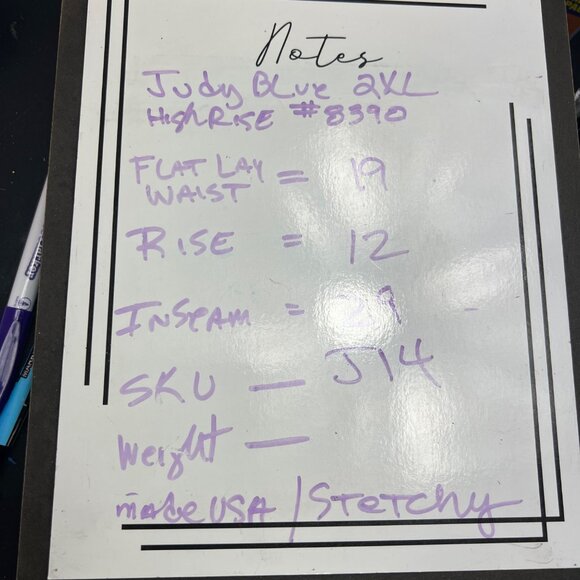 Notes
Judy Blue 2XL
High Rise #8390
FLAT LAY = 19
WAIST
RISE = 12
INSeam =
SKU — J14
Weight —
made USA / STreTCHy